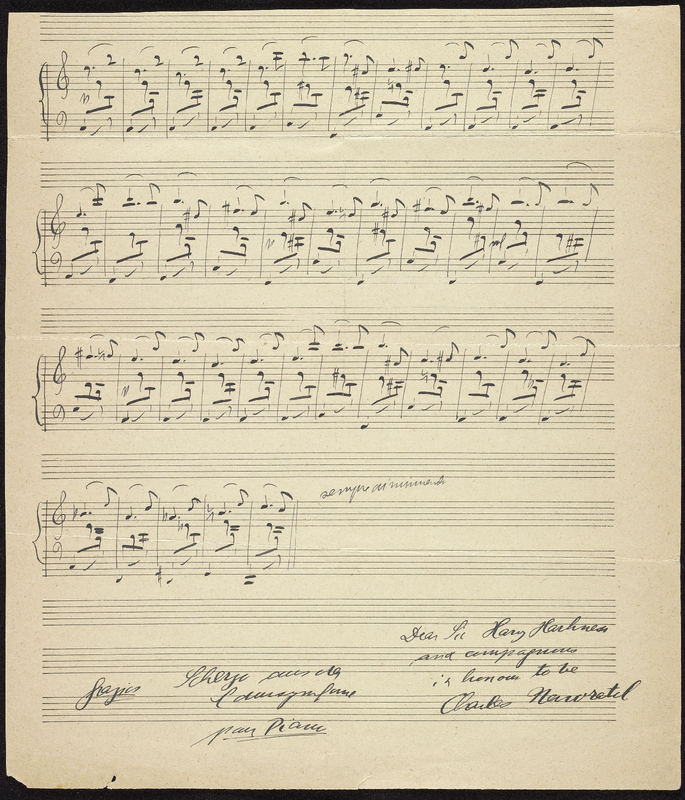 sempre diminuendo
Dear Sir Harry Harkness
and compagnons
is honour to be
Charles Nawratil
Scherzo aus der
pour Piano